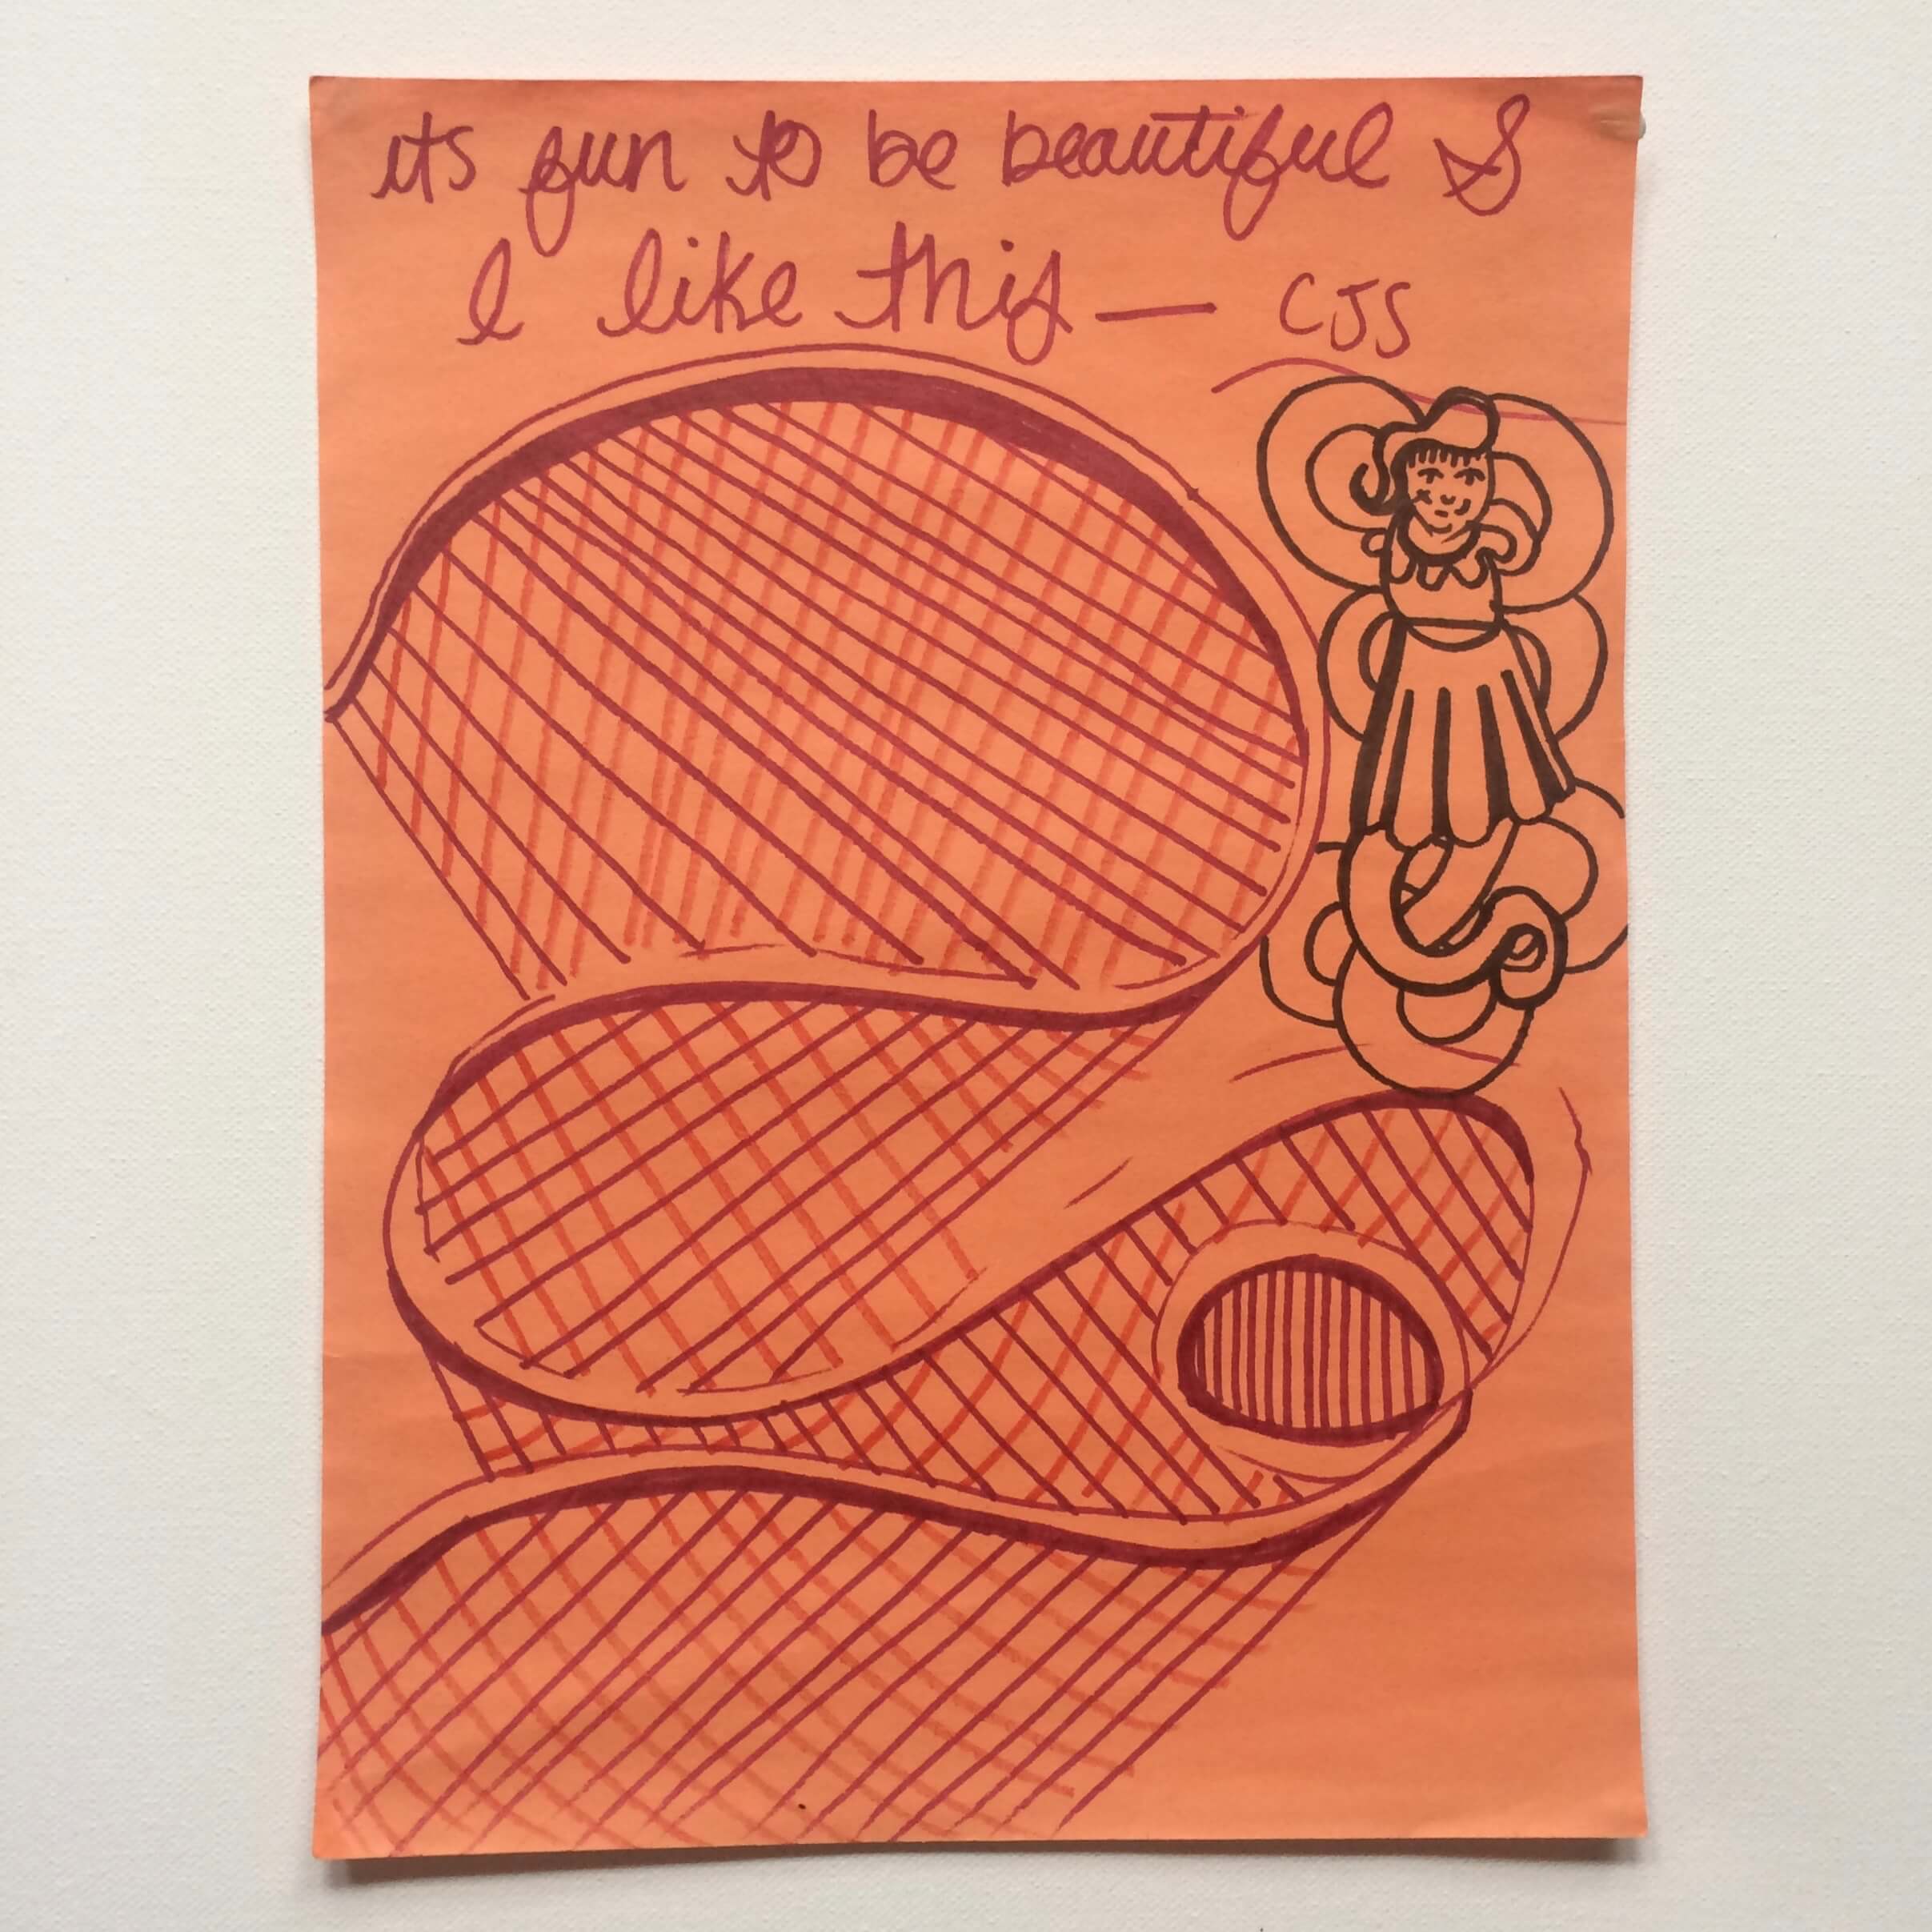 its fun to be beautiful &
I like this — CJS